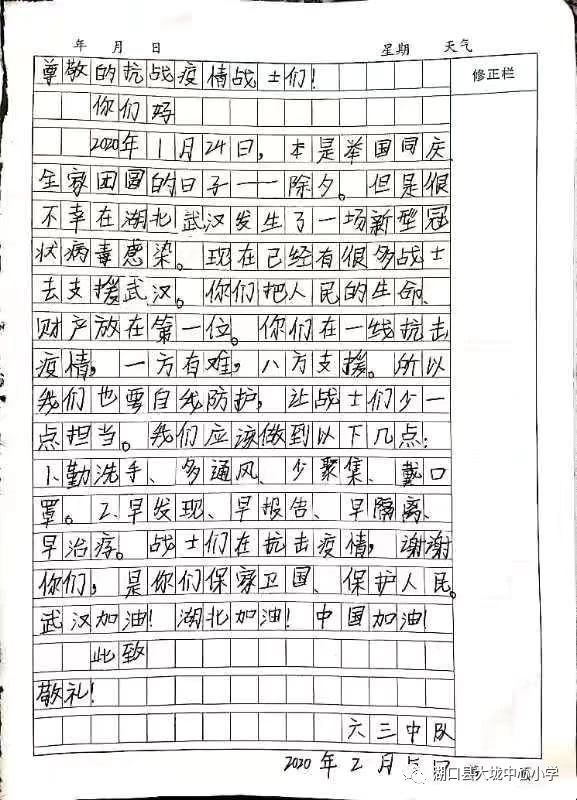 年 月 日 星期 天气
修正栏
尊敬的抗战疫情战士们！
你们好
2020年1月24日，本是举国同庆、
全家团圆的日子——除夕。但是很
不幸在湖北武汉发生了一场新型冠
状病毒感染。现在已经有很多战士
去支援武汉。你们把人民的生命、
财产放在第一位。你们在一线抗击
疫情，一方有难，八方支援。所以
我们也要自我防护，让战士们少一
点担当。我们应该做到以下几点：
1、勤洗手、多通风、少聚集、戴口
罩。2、早发现、早报告、早隔离、
早治疗。战士们在抗击疫情，谢谢
你们，是你们保家卫国、保护人民。
武汉加油！湖北加油！中国加油！
此致
敬礼！
六三中队
2020年2月5日
湖口县大垅中心小学